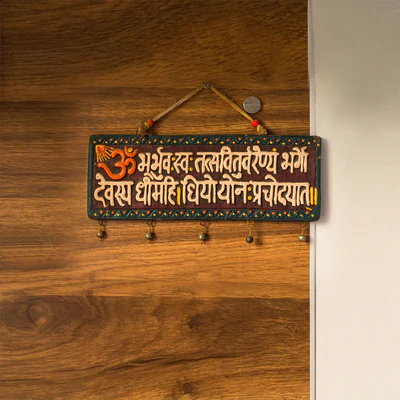 ॐ भूर्भुवः स्वः तत्सवितुर्वरेण्यं भर्गो
देवस्य धीमहि। धियो योनः प्रचोदयात॥